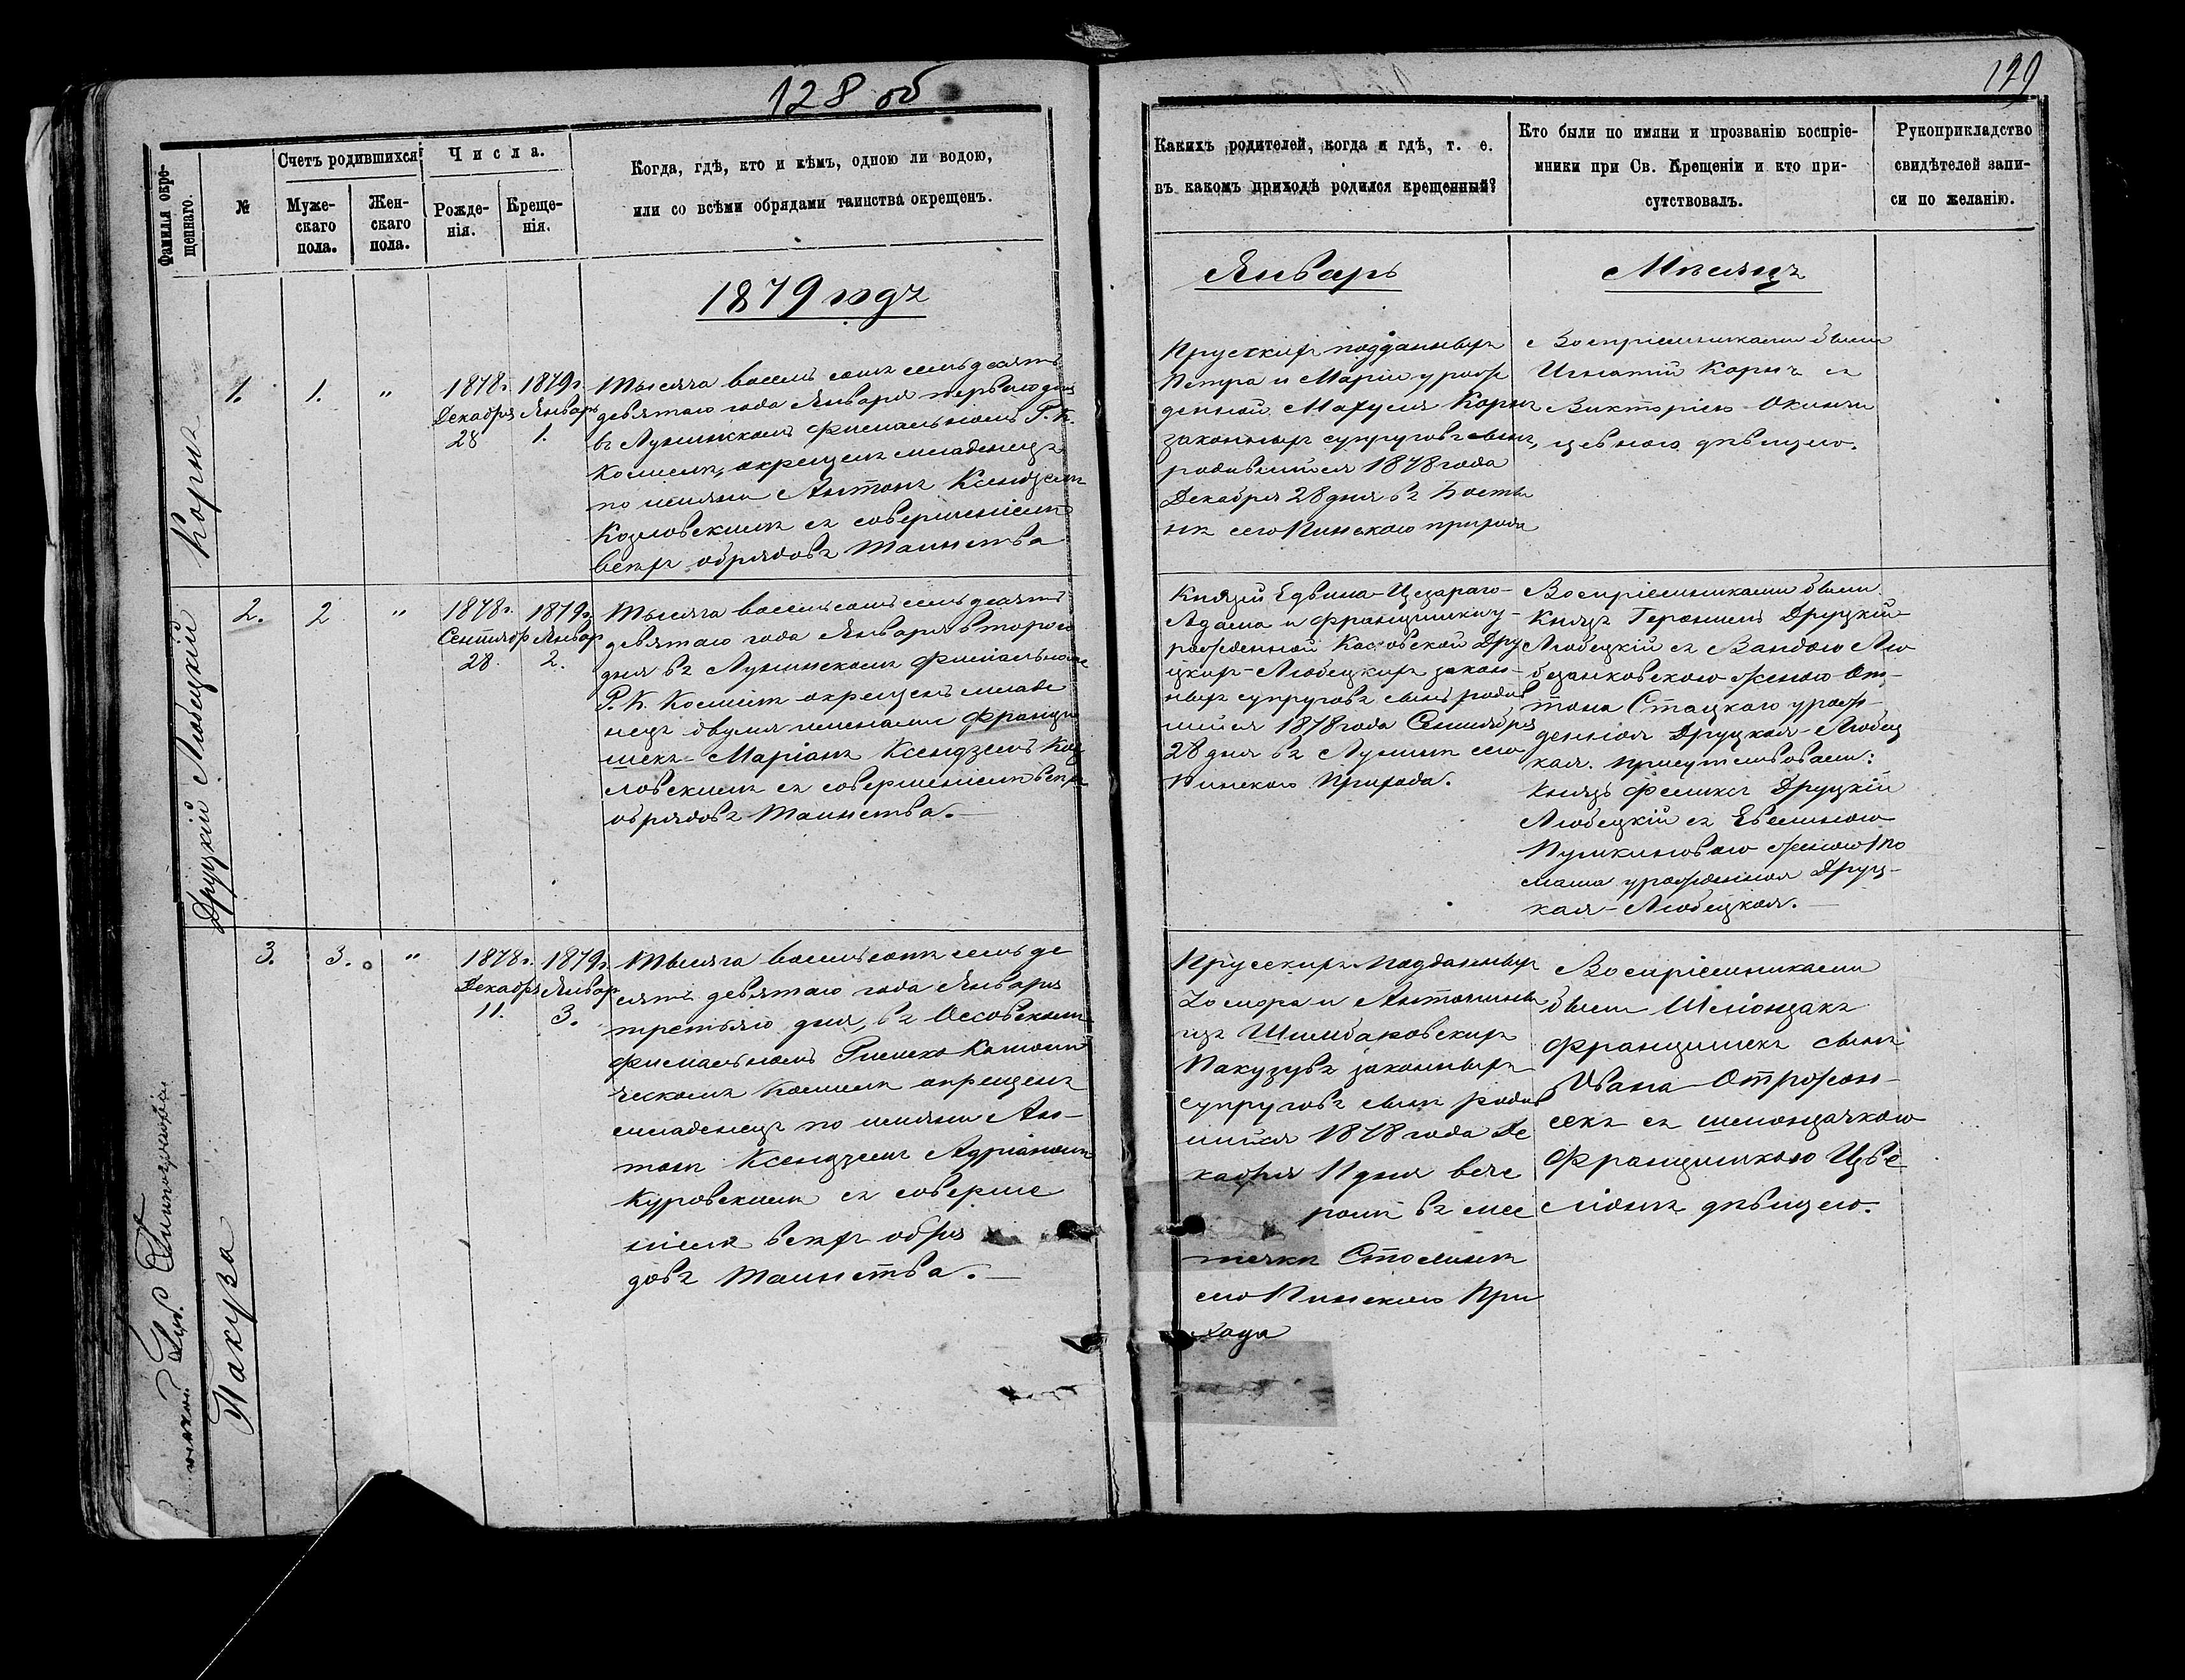 128 об
129
Фамилія окре-
щеннаго.
№
Счетъ родившихся
Муже-
скаго
пола.
Жен-
скаго
пола.
Числа.
Рожде-
нія.
Креще-
нія.
Когда, гдѣ, кто и кѣмъ, одною ли водою,
или со всѣми обрядами таинства окрещенъ.
Какихъ родителей, когда и гдѣ, т. е.
въ какомъ приходѣ родился крещенный?
Кто были по имяни и прозванію воспріе-
мники при Св. Крещеніи и кто при-
сутствовалъ.
Рукоприкладство
свидѣтелей запи-
си по желанію.
1879 годъ
Январь
Мѣсяцъ
Корнъ
1.
1.
"
1878г.
Декабря
28
1879г.
Январь
1.
Тысяча восемь сотъ семьдесятъ
девятаго года Января перваго дня
въ Лунинскомъ филіальномъ Р. К.
Костелѣ, окрещенъ младенецъ
по имяни Антонъ Ксендземъ
Козловскимъ съ совершеніемъ
всѣхъ обрядовъ Таинства
Прусскихъ подданныхъ
Петра и Маріи урож
денной Корнъ
законныхъ супруговъ сынъ,
родившійся 1878 года
Декабря 28 дня въ
сего Пинского прихода
Воспріемниками были
Игнатій Корнъ съ
Викторіею
дѣвицею.
Друцкій Любецкій
2.
2
"
1878г.
Сентябр
28.
1879г.
Январ
2.
Тысяча восемьсотъ семьдесятъ
девятаго года Января втораго
дня въ Лунинскомъ Филіальномъ
Р. К. Костелѣ окрещенъ младе
нецъ двумя именами Франци
шекъ-Маріанъ Ксендземъ Коз
ловскимъ съ совершеніемъ всѣхъ
обрядовъ Таинства.
Князей Едвина-Цезараго-
Адама и Францишки у-
рожденной Дру
цкихъ-Любецкихъ закон-
ныхъ супруговъ сынъ родив
шійся 1878 года Сентября
28 дня въ Лунинѣ сего
Пинского Прихода.
Воспріемниками были
Князь Геронимъ Друцкій
Любецкій съ Вандою Лю
женою Ан-
тона Стацкого урож-
денная Друцкая-Любец
кая. присутствовали:
Князь Феликсъ Друцкій
Любецкій съ Евелиною
женою То
маша урожденная Друц-
кая-Любецкая.
Пакуза
3.
3.
"
1878г.
Декабря
11.
1879г.
Январ
3.
Тысяча восемьсотъ семьде
сятъ девятаго года Января
третьяго дня, въ Оссовскомъ
филіальномъ Римско Католи
ческомъ Костелѣ окрещенъ
младенецъ по имяни Ан-
тонъ Ксендземъ Адріаномъ
Куровскимъ съ соверше
ніемъ всѣхъ обря
довъ Таинства.
Прусскихъ Подданныхъ
и Антонины
изъ
Пакузовъ законныхъ
супруговъ сынъ родив
шійся 1878 года Де
кабря 11 дня вече
ромъ въ мес
течкѣ Столинѣ
сего Пинского При
хода
Воспріемниками
были
Францишекъ сынъ
Ивана
съ
Францишкою
дѣвицею.